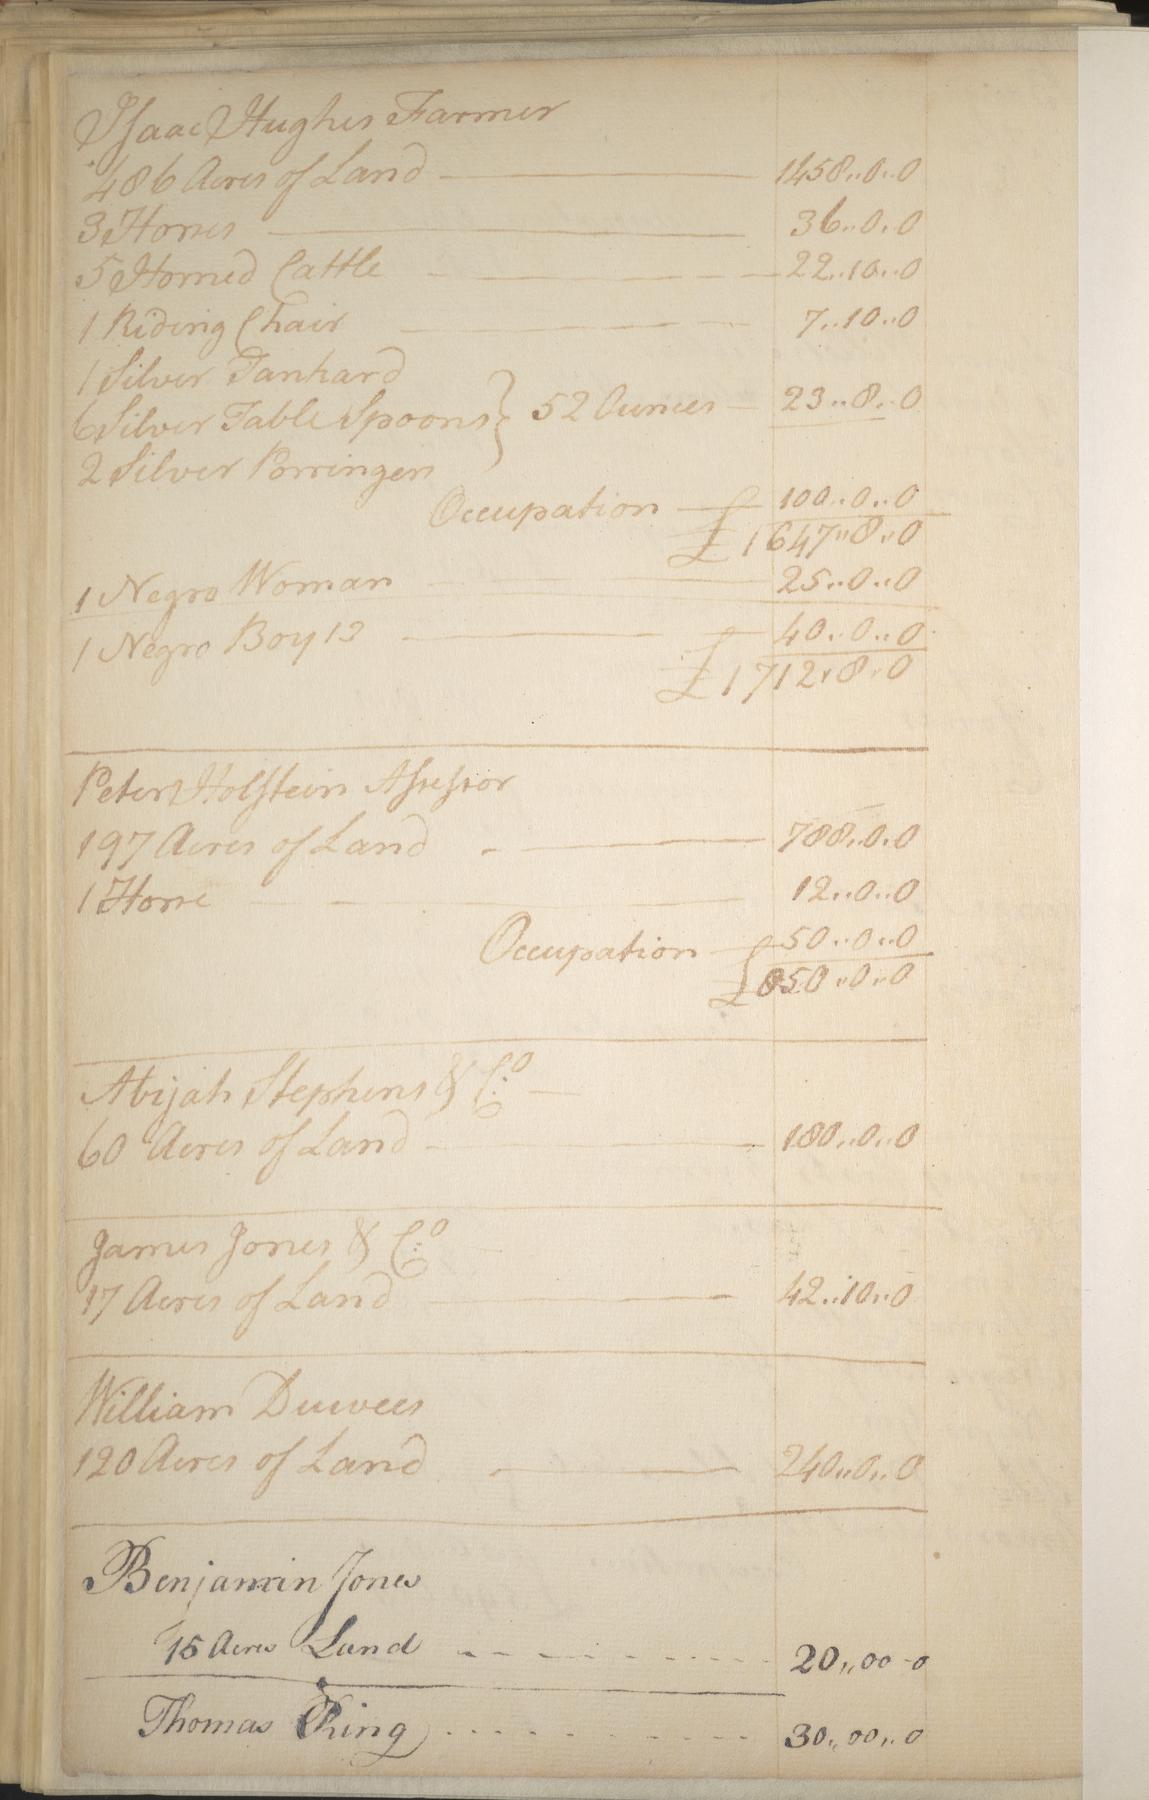 Isaac Hughes Farmer
486 Acres of Land 1458..0..0
3 Horses 36..0..0
5 Horned Cattle 22..10..0
1 Riding Chair 7..10..0
1 Silver Tankard
6 Silver Table Spoons } 52 Ounces 23..8..0
2 Silver Porringers
Occupation 100..0..0
£1647..8..0
1 Negro Woman 25..0..0
1 Negro Boy 12 40..0..0
£1712..8..0
Peter Holstein Assessor
197 Acres of Land 788..0..0
1 Horse 12..0..0
Occupation 50..0..0
£850..0..0
Abijah Stephens & Co.
60 Acres of Land 180..0..0
James Jones & Co.
17 Acres of Land 42..10..0
William Dewees
120 Acres of Land 240..0..0
Benjamin Jones
15 Acres Land 20,,00-0
Thomas King 30,,00,,0